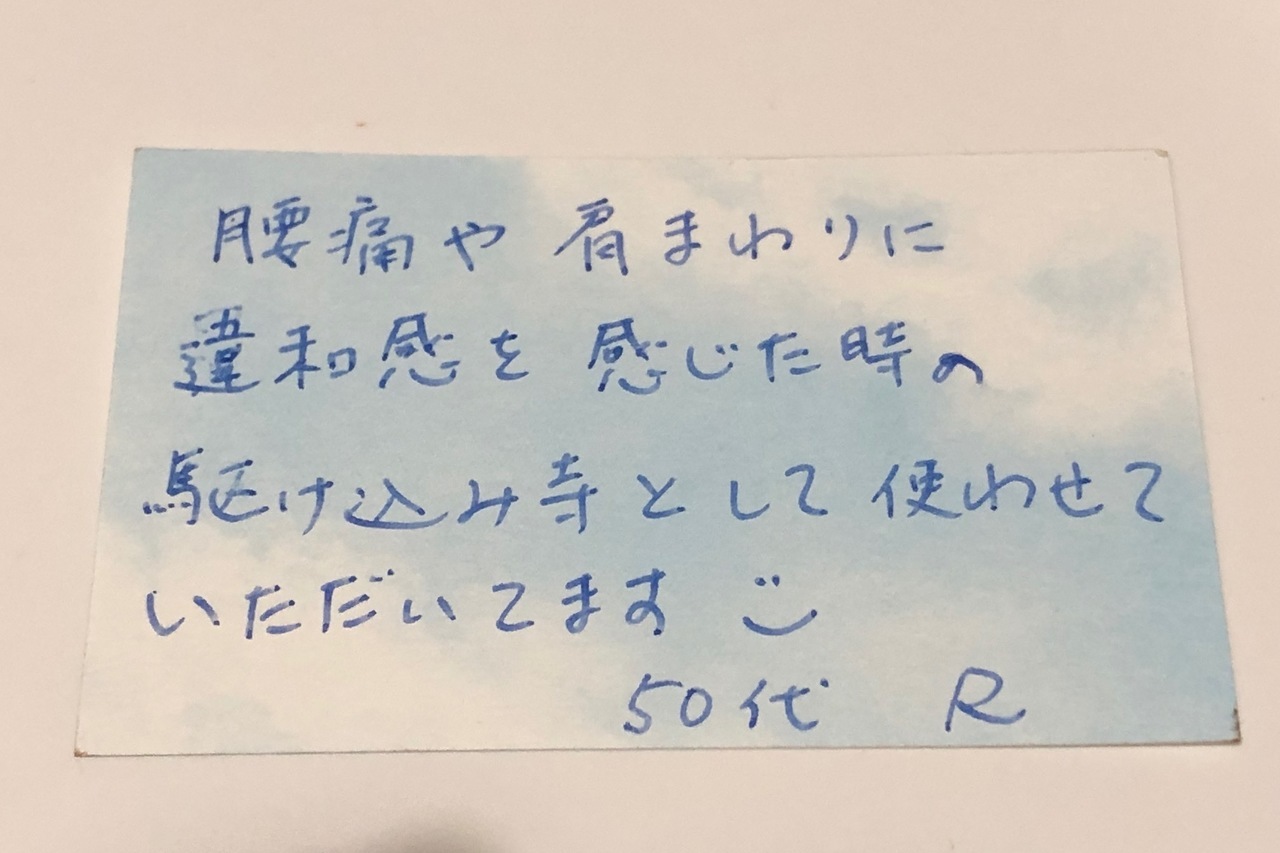 腰痛や肩まわりに
違和感を感じた時の
駆け込み寺として使わせて
いただいてます
50代 R